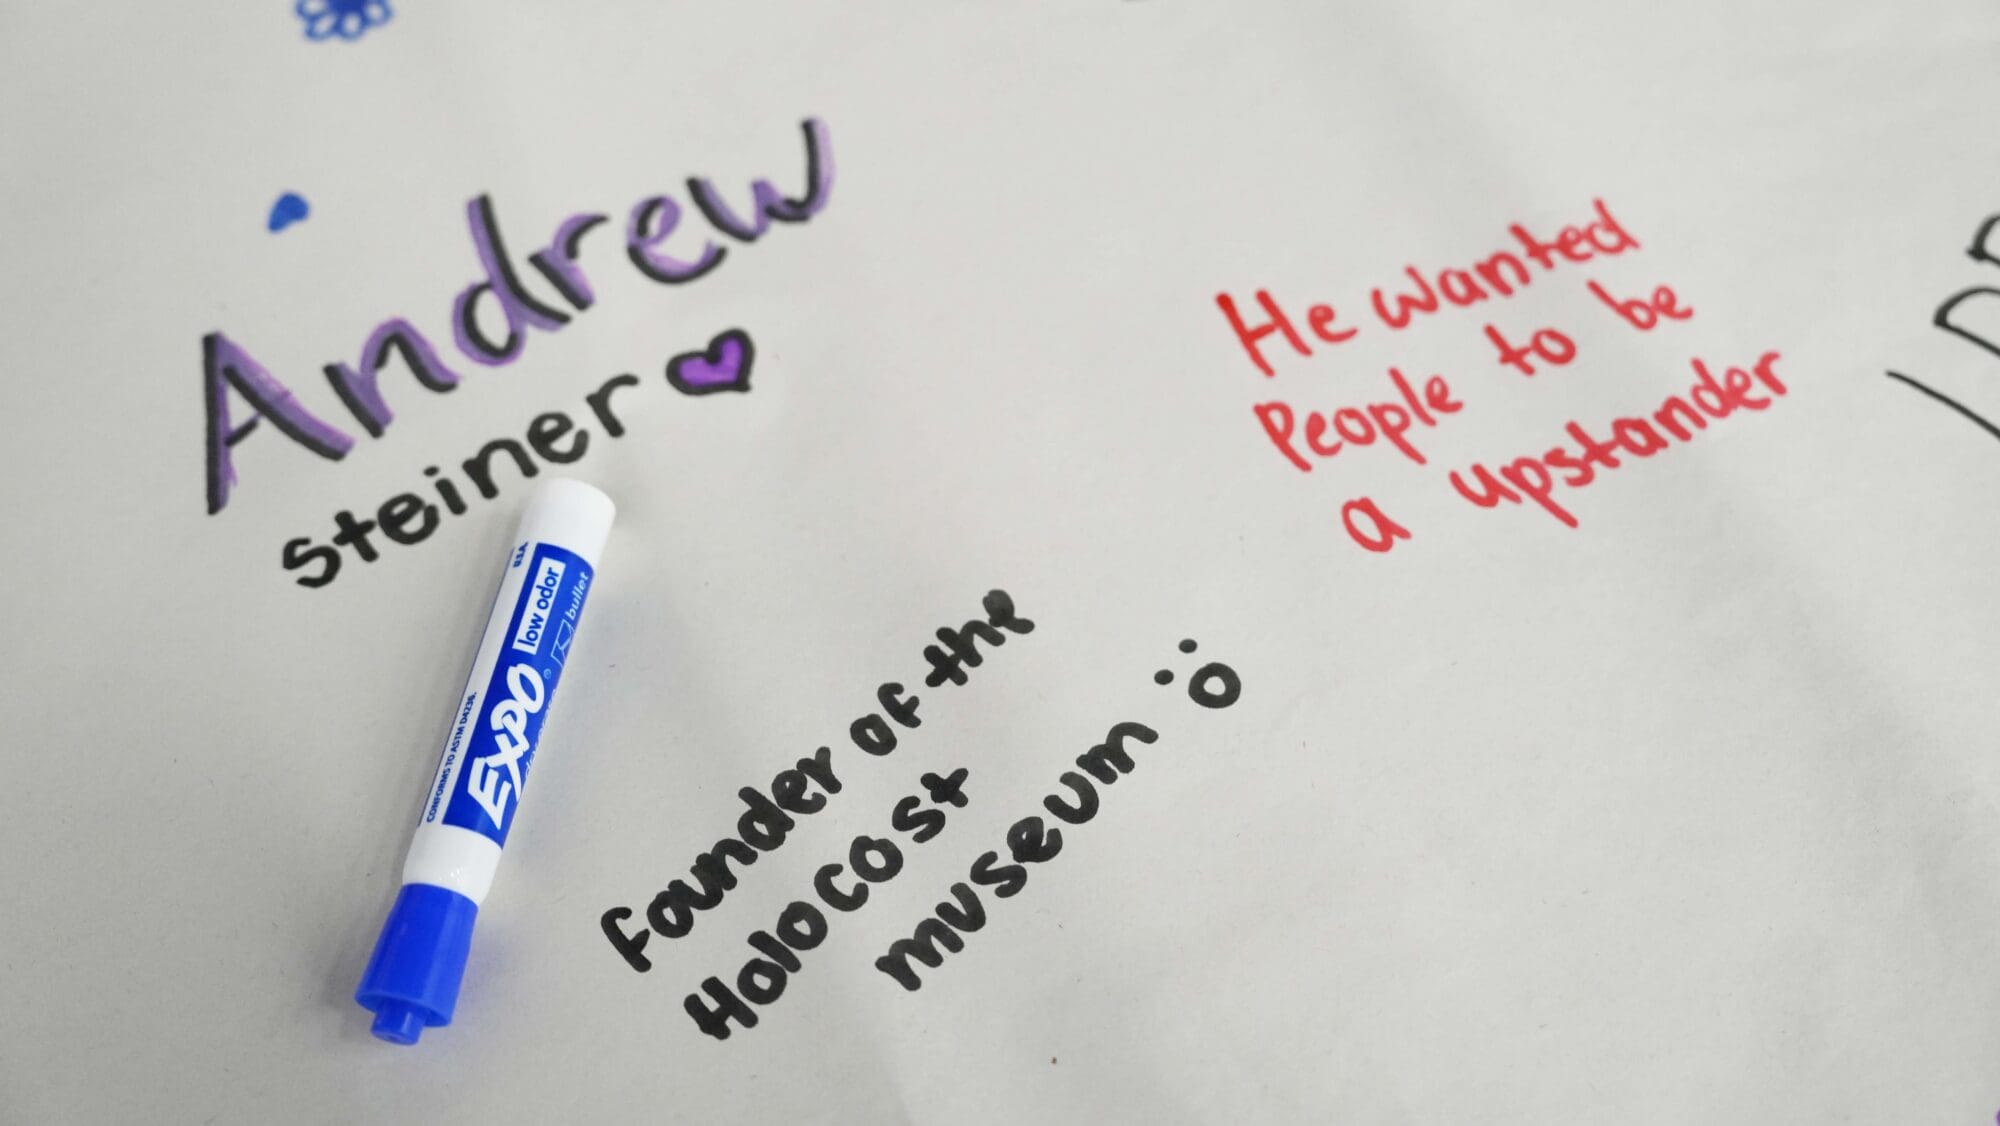 Andrew
steiner
He wanted
People to be
a upstander
founder of the
Holocost
museum
EXPO
low odor
bullet
U.S.A.
CONFORMS TO ASTM D4236.